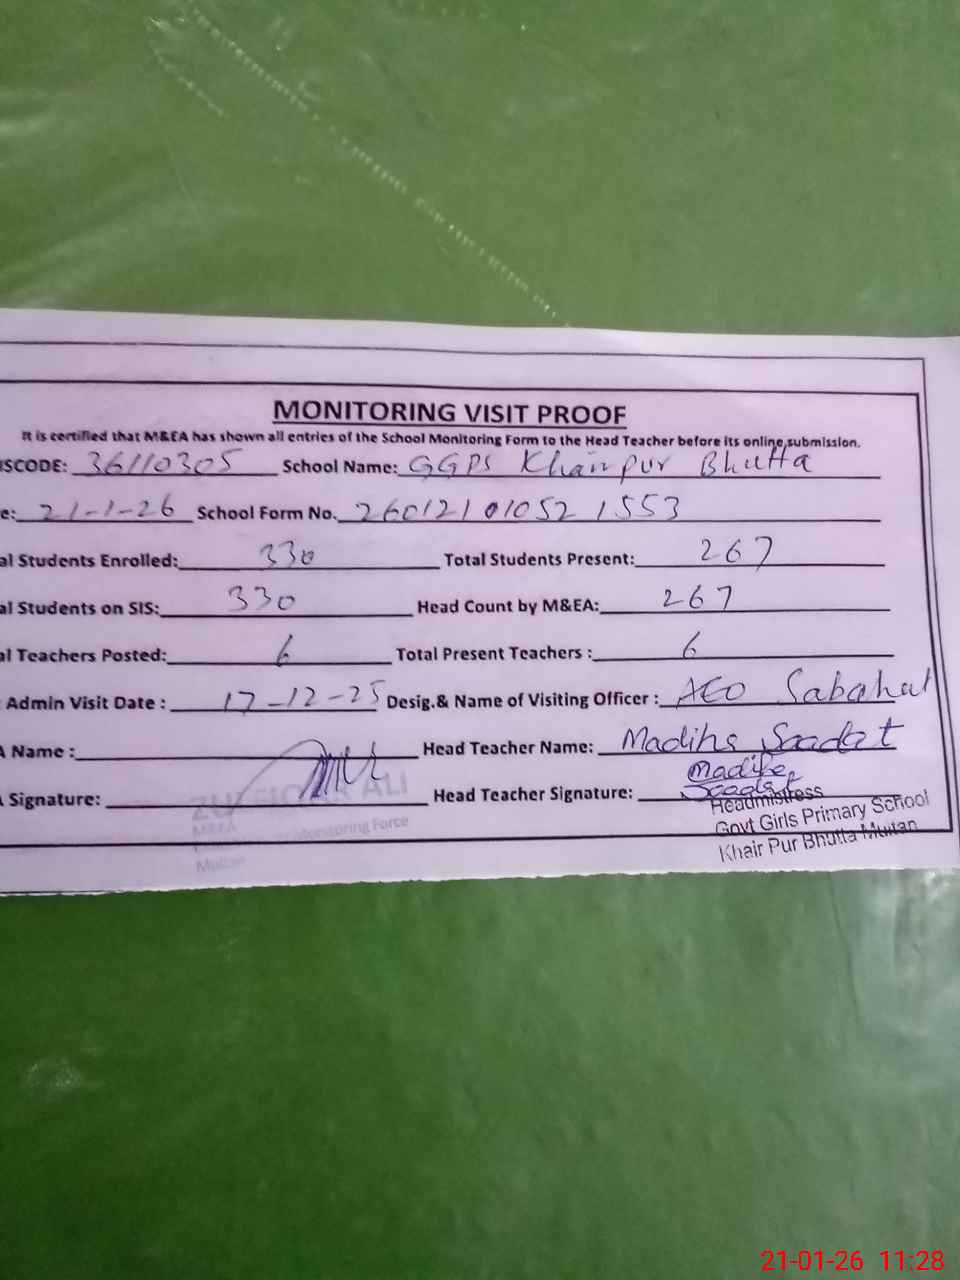 MONITORING VISIT PROOF
It is certified that M&EA has shown all entries of the School Monitoring Form to the Head Teacher before its online,submission.
ISCODE: 36110305 School Name: GGPS Khairpur Bhutta
e: 21-1-26 School Form No. 260121010521553
al Students Enrolled: 330 Total Students Present: 267
al Students on SIS: 330 Head Count by M&EA: 267
al Teachers Posted: 6 Total Present Teachers : 6
Admin Visit Date : 17-12-25 Desig.& Name of Visiting Officer : AEO Sabahat
A Name : Head Teacher Name: Madiha Saadat
Signature: Head Teacher Signature: Madiha
ALI
Headmistress
M&EA
Monitoring Force
Govt Girls Primary School
Multan
Khair Pur Bhutta Multan
21-01-26 11:28